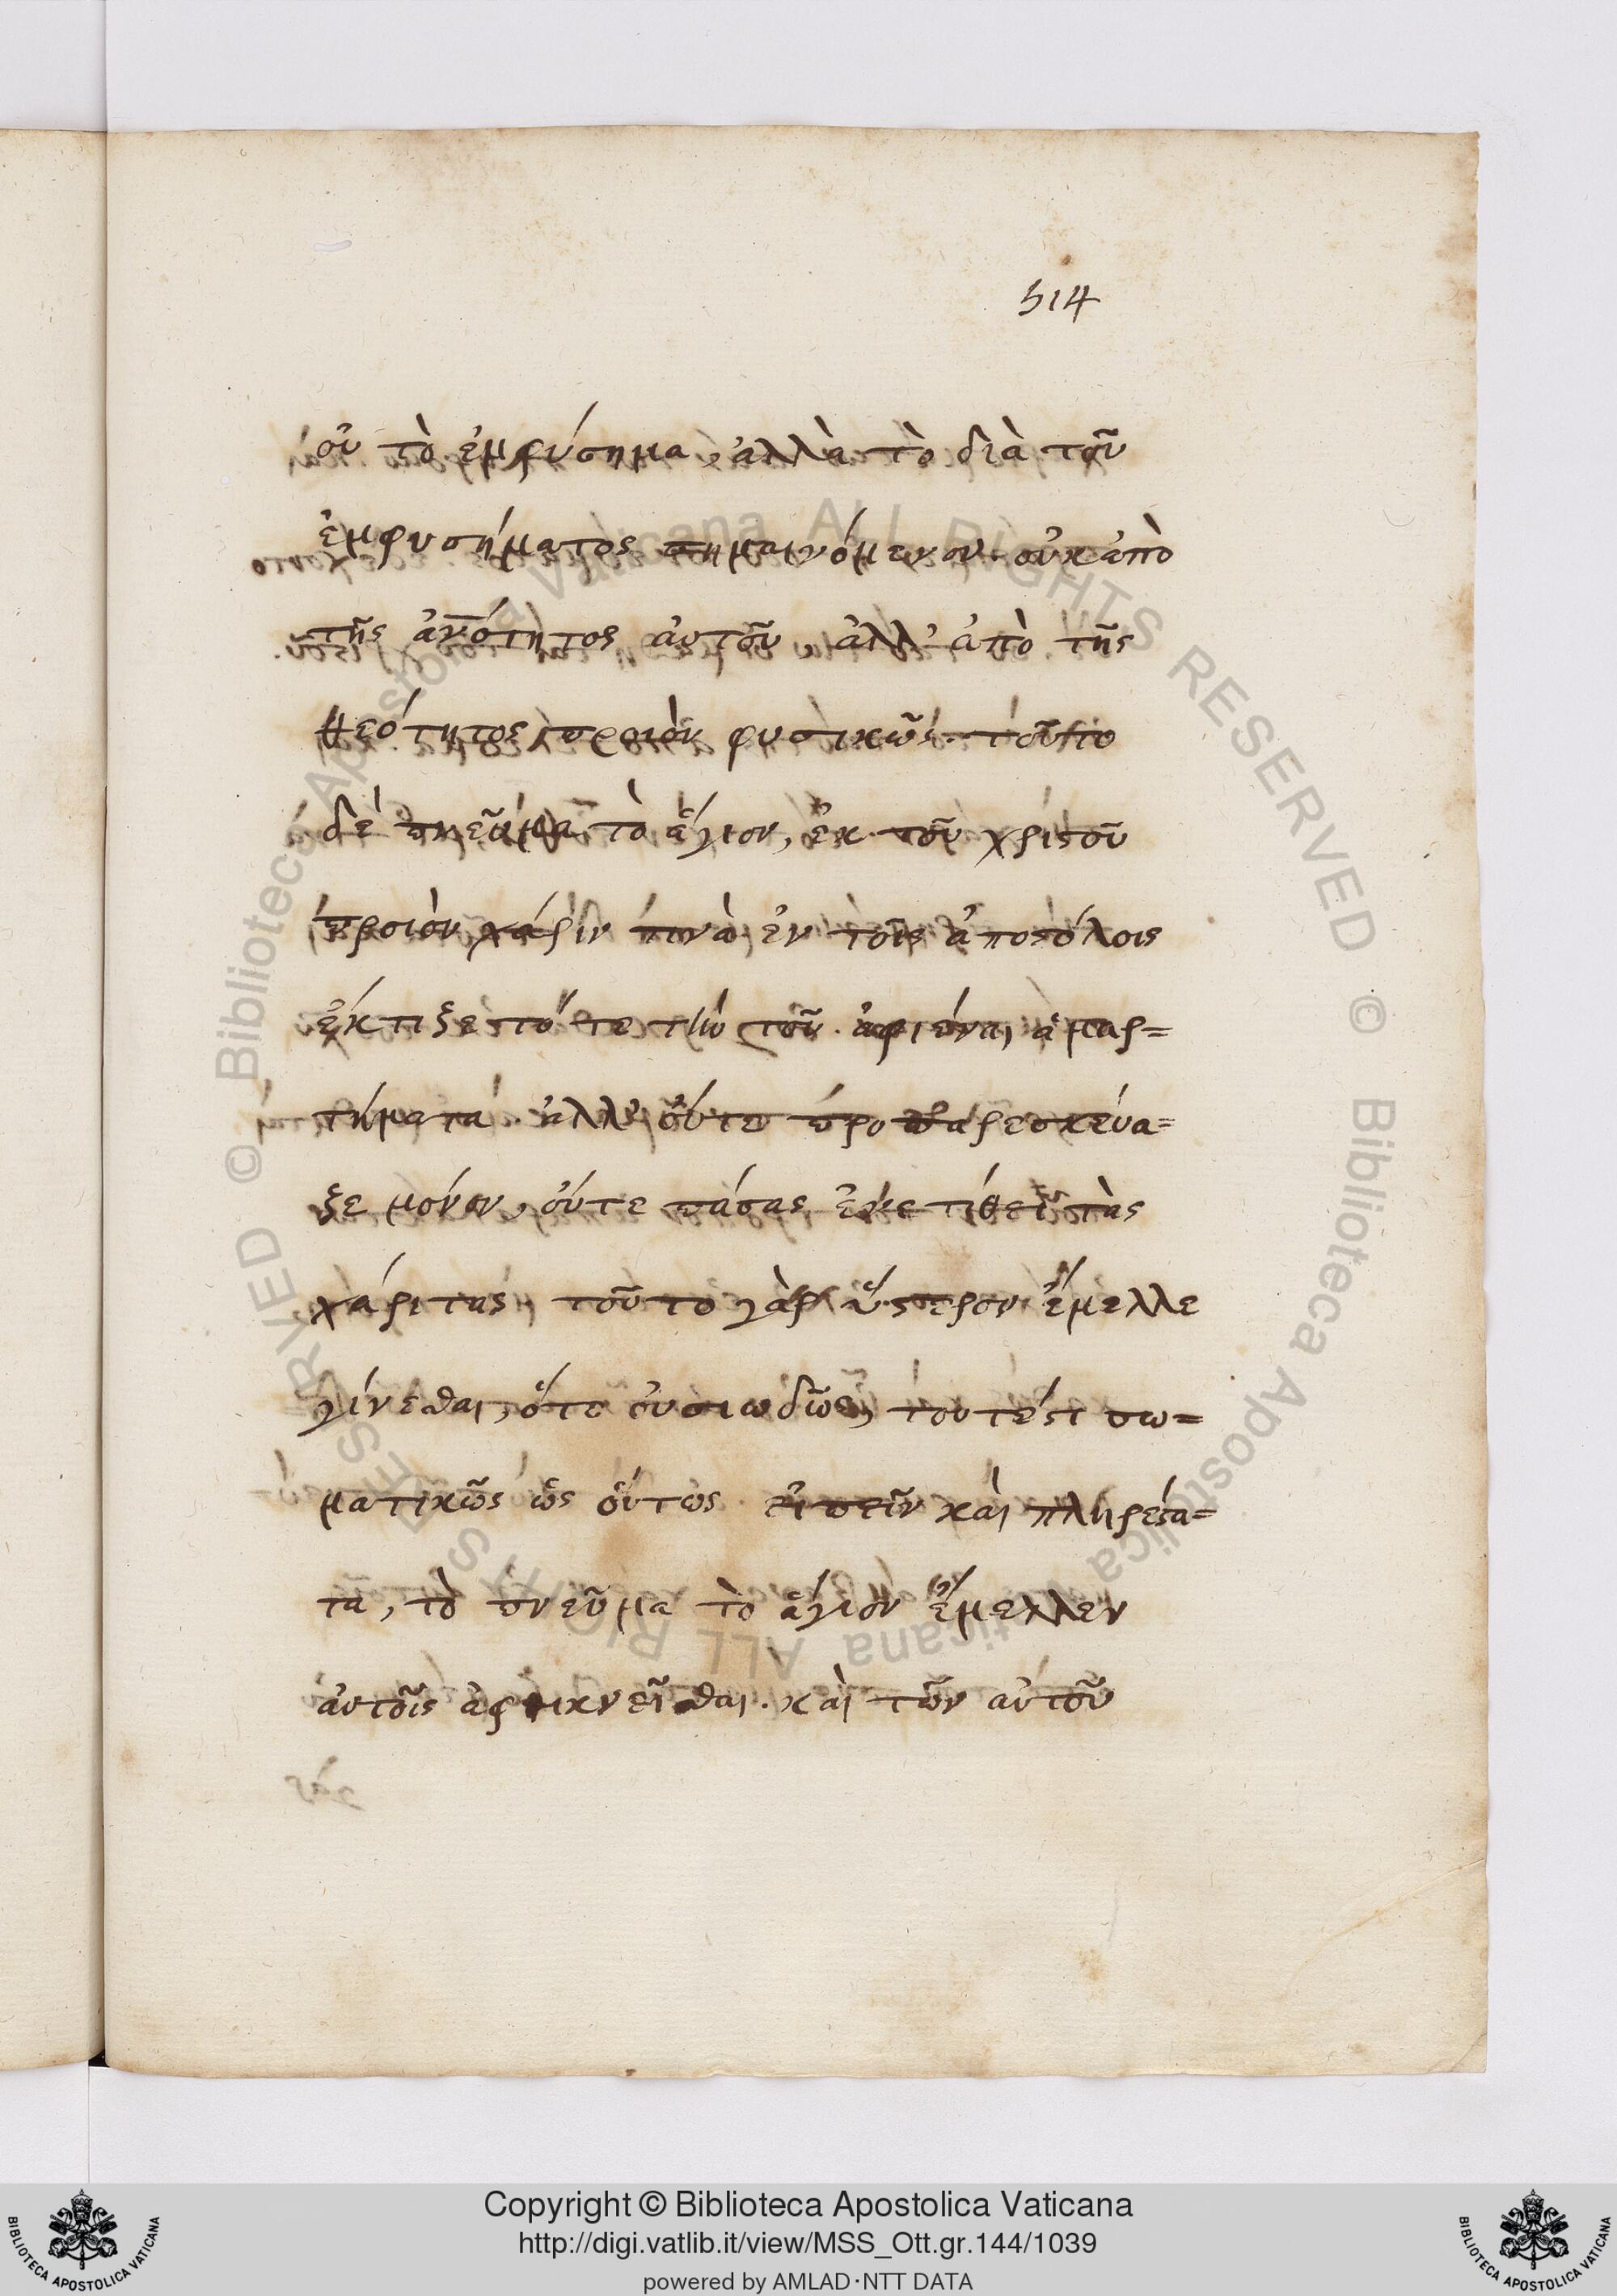 514
οὐ τὸ ἐμφύσημα, ἀλλὰ τὸ διὰ τοῦ
ἐμφυσήματος σημαινόμενον· οὐκ ἀπὸ
τῆς ἀν̅ότητος αὐτοῦ, ἀλλ' ἀπὸ τῆς
θεότητος προϊὸν φυσικῶς· τοῦτο
δὲ πνεῦμα τὸ ἅγιον, ἐκ τοῦ χριστοῦ
προϊὸν, χάριν τινὰ ἐν τοῖς ἀποστόλοις
ἔκτιξε τότε τὴν τοῦ ἀφιέναι ἁμαρ=
τήματα· ἀλλ' οὔτε προπαρεσκεύα=
ξε μόνον, οὔτε πάσας ἐνετίθει τὰς
χάριτας, τοῦτο γὰρ ὕστερον ἔμελλε
γίνεσθαι, ὅτε οὐσιωδῶς, τουτέστι σω=
ματικῶς ὡς οὕτως εἰπεῖν καὶ πληρέστα=
τα, τὸ πνεῦμα τὸ ἅγιον ἔμελλεν
αὐτοῖς ἀφικνεῖσθαι· καὶ τῶν αὐτοῦ
© Biblioteca Apostolica Vaticana ALL RIGHTS RESERVED © Biblioteca Apostolica Vaticana ALL RIGHTS RESERVED
Copyright © Biblioteca Apostolica Vaticana
http://digi.vatlib.it/view/MSS_Ott.gr.144/1039
powered by AMLAD·NTT DATA
BIBLIOTECA APOSTOLICA VATICANA
BIBLIOTECA APOSTOLICA VATICANA